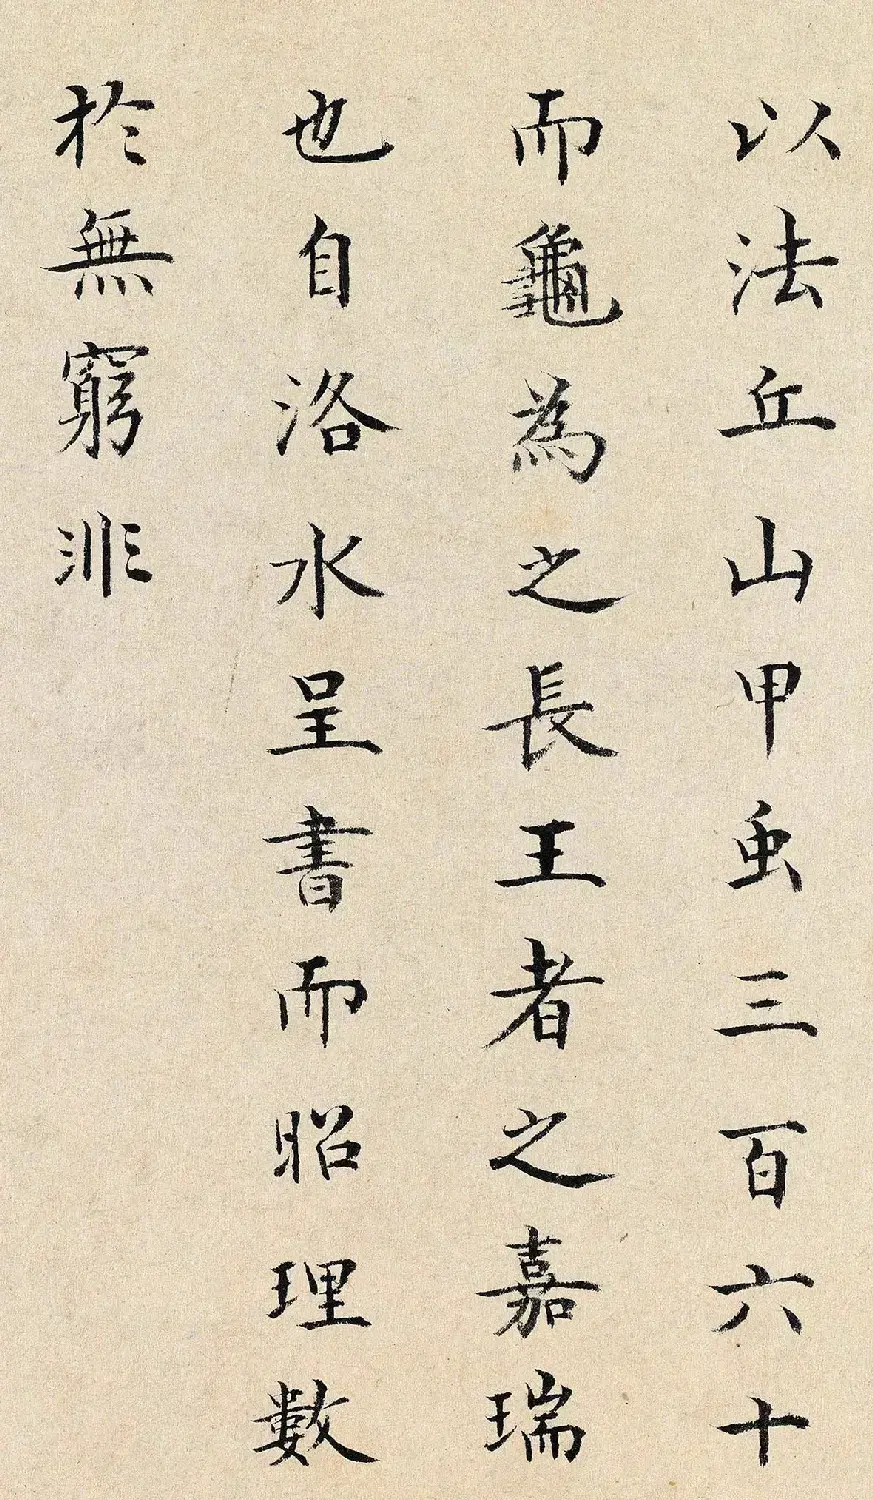 以法丘山甲虫三百六十
而龜為之長王者之嘉瑞
也自洛水呈書而昭理數
於無窮非